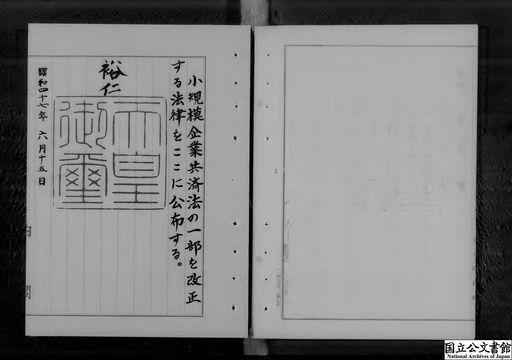 小規模企業共済法の一部を改正
する法律をここに公布する。
裕仁
天皇
御璽
昭和四十七年 六月十五日
内 閣
国立公文書館
National Archives of Japan